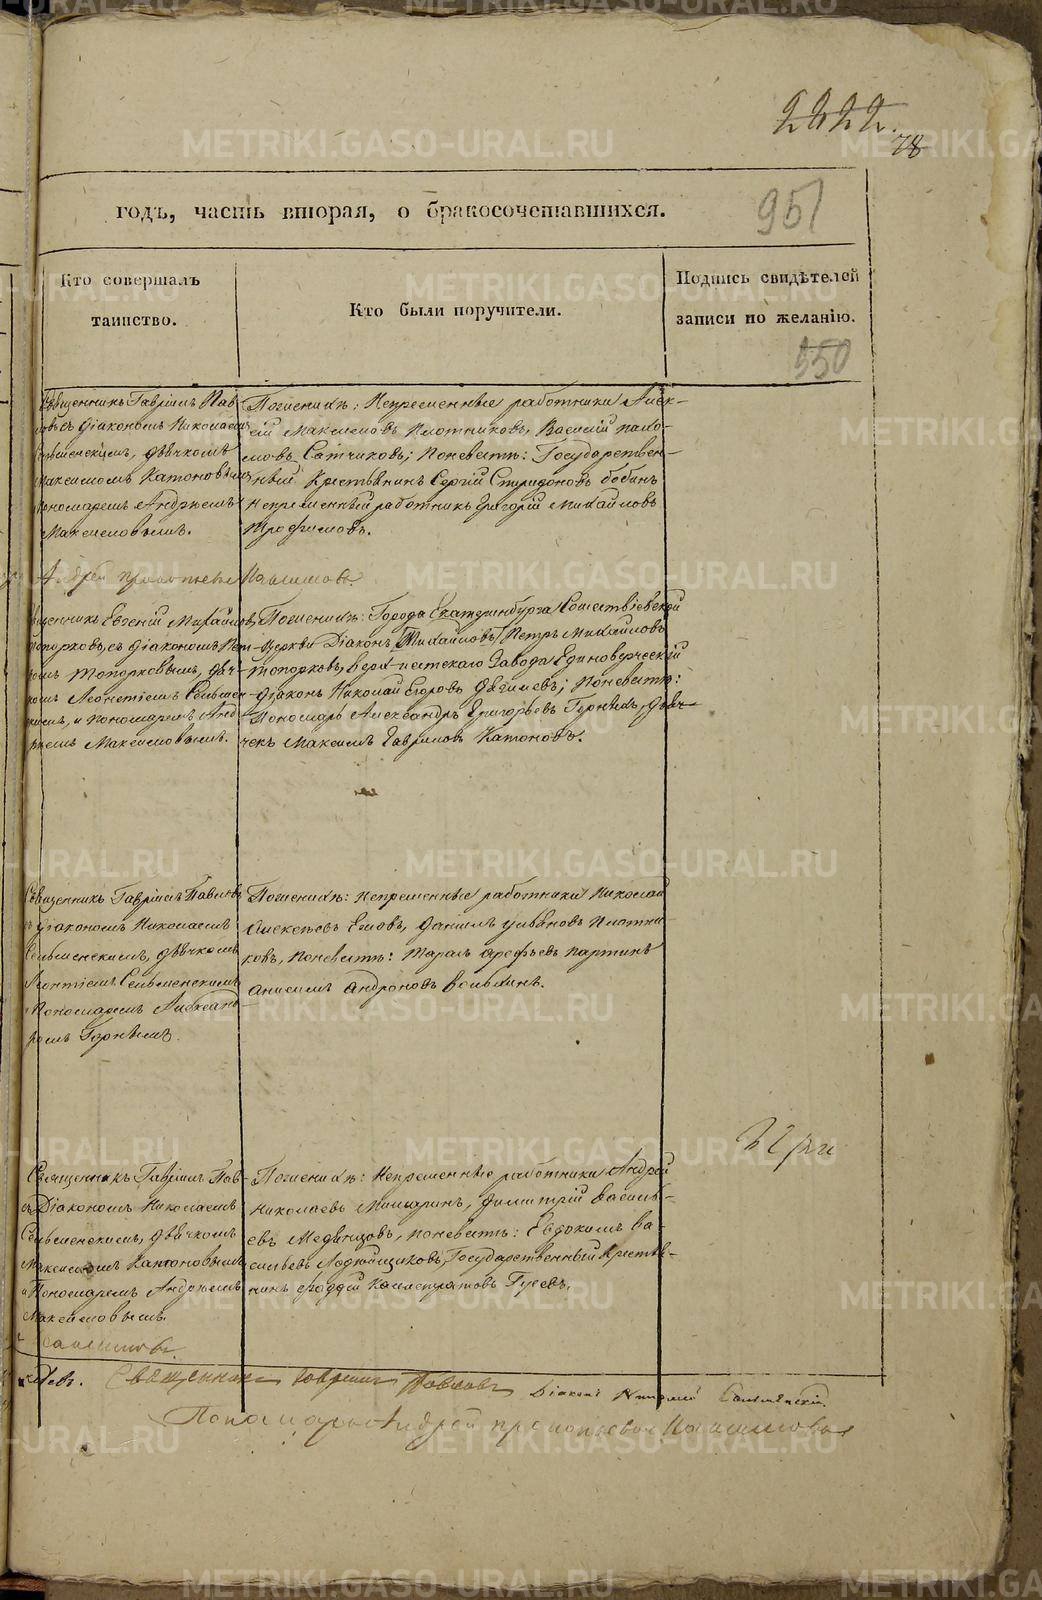 2422.
78
годъ, часть вторая, о бракосочетавшихся.
951
Кто совершалъ
таинство.
Кто были поручители.
Подпись свидѣтелей
записи по желанію.
550
Священникъ Гавріилъ Пав-
ловъ съ Діакономъ Николаемъ
Сельменскимъ, дьячкомъ
Максимомъ Катоновымъ
пономаремъ Андреемъ
Максимовымъ.
По женихѣ: Непремѣнные работники Алек-
сѣй Максимовъ Плотниковъ, Василій
Сатчиковъ; по невѣстѣ: Государствен-
ный Крестьянинъ Сергій Спиридоновъ Бобинъ
Непремѣнный работникъ Григорій Михайловъ
Трофимовъ.
Андрей
Священникъ Евгеній Михайловъ
Топорковъ, съ Діакономъ Пет-
ромъ Топорковымъ, дьяч-
комъ Леонтіемъ Сельмен-
скимъ, и пономаремъ Анд-
реемъ Максимовымъ.
По женихѣ: Города Екатеринбурга Сошествіевской
Церкви Діаконъ Михайловъ Петръ Михайловъ
Топорковъ, Верх-исетскаго Завода Единоверческій
Діаконъ Николай Егоровъ Дягилевъ; по невѣстѣ:
Пономарь Александръ Григорьевъ Горныхъ, Дья-
чекъ Максимъ Гавриловъ Катоновъ.
Священникъ Гавріилъ Павловъ
съ Діакономъ Николаемъ
Сельменскимъ, дьячкомъ
Леонтіемъ Сельменскимъ
и Пономаремъ Александ-
ромъ Горнымъ.
По женихѣ: Непремѣнные работники Николай
Алексѣевъ Еловъ, Даніилъ Ульяновъ Плотни-
ковъ, по невѣстѣ: Тарасъ Арефьевъ Партинъ
Анисимъ Андроновъ Волыхинъ.
Священникъ Гавріилъ Пав-
съ Діакономъ Николаемъ
Сельменскимъ, дьячкомъ
Максимомъ Катоновымъ
и Пономаремъ Андреемъ
Максимовымъ.
По женихѣ: Непремѣнные работники Андрей
Николаевъ Мишаринъ, Димитрій Василь-
евъ Медвинцовъ, по невѣстѣ: Евдокимъ Ва-
сильевъ Лодейщиковъ, Государственный Крестья-
нинъ Фаддей Калистратовъ Гусевъ.
Священникъ Гавріилъ Павловъ Діаконъ Николай Сельменскій
Пономарь Андрей
METRIKI.GASO-URAL.RU